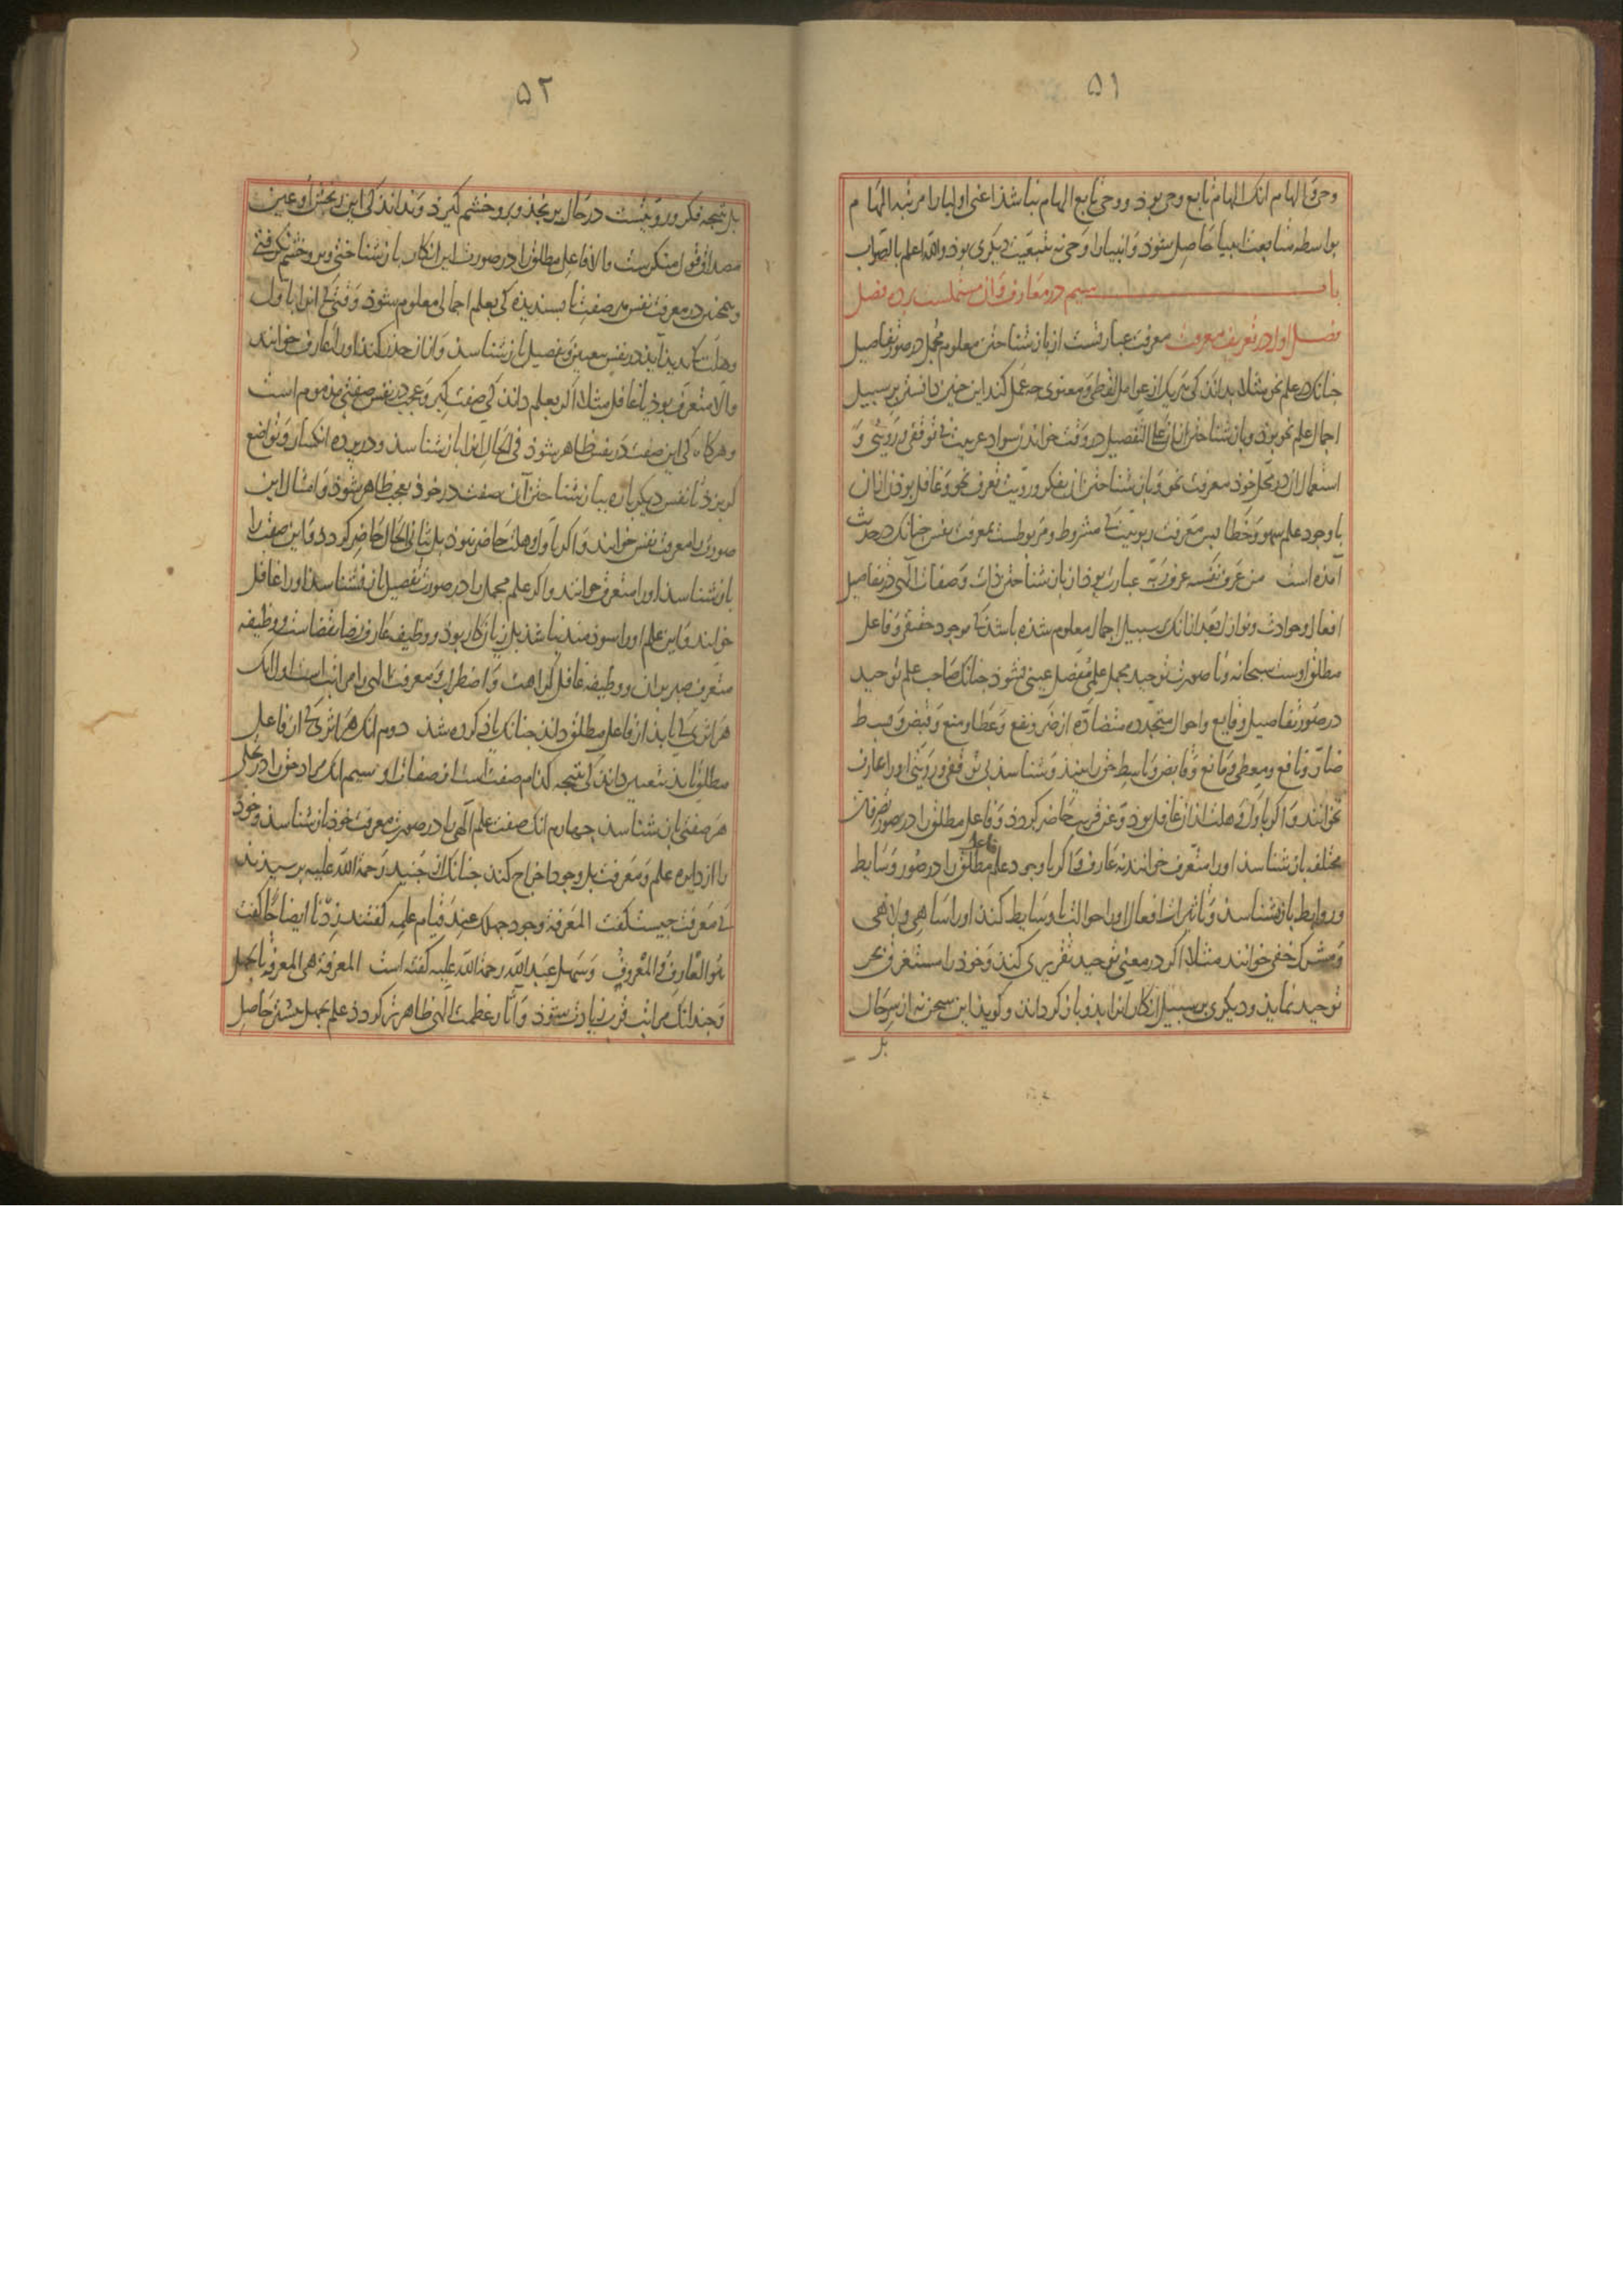 ۵۱
وحی و الهام انک الهام تابع وحی بوذ و وحی تابع الهام نباشذ اعنی اولیا را مرتبه الهام
بواسطه متابعت انبیا حاصل شوذ و انبیا را وحی نه بتبعیت دیکری بوذ والله اعلم بالصواب
باب سیم در معارف و ان مشتملست بر ده فصل
فصل اول در تعریف معرفت معرفت عبارتست از بازشناختن معلوم مجمل در صور تفاصیل
جنانک در علم نحو مثلا بدانذ کی هر یک از عوامل لفظی و معنوی جه عمل کند این جنین دانستن بر سبیل
اجمال علم نحو بوذ و بازشناختن ان علی التفصیل در وقت خواندن سواد عربیت بی توقفی و رویتی و
استعمال ان در محل خوذ معرفت نحو و بازشناختن ان بفکر و رویت تعرف نحو و غافل بوذن از ان
با وجود علم سهو و خطا بس معرفت ربوبیت کی مشروط و مربوطست بمعرفت نفس جنانک در حدیث
امذه است من عرف نفسه عرف ربه عبارت بوذ از بازشناختن ذات و صفات الهی در تفاصیل
افعال و حوادث و نوازل بعد از انک بر سبیل اجمال معلوم شذه باشذ کی موجود حقیقی و فاعل
مطلق اوست سبحانه و تا صورت توحید مجمل علمی مفصل عینی نشوذ جنانک صاحب علم توحید
در صور تفاصیل وقایع و احوال متجدده متضاده از ضر و نفع و عطا و منع و قبض و بسط
ضار و نافع و معطی و مانع و قابض و باسط حق را بینذ و شناسذ بی توقفی و رویتی او را عارف
نخوانند و اکر باول وهلت از ان غافل بوذ و عن قریب حاضر کردذ و فاعل مطلق را در صور تصرفات
مختلف بازشناسذ او را متعرف خوانند نه عارف و اکر با وجود علم فاعل مطلق را در صور وسایط
و روابط بازنشناسذ و تاثیرات افعال را حوالت با وسایط کند او را ساهی و لاهی
و مشرک خفی خوانند مثلا اکر در معنی توحید تقریری کند و خوذ را مستغرق بحر
توحید نمایذ و دیکری بر سبیل انکار انرا بدو باز کرداند و کویذ این سخن نه از سر حال
بل
۵۲
بل نتیجه فکر و رویتست در حال برنجذ و برو خشم کیرذ و نداند کی این رنجش او عین
مصداق قول منکرست والا فاعل مطلق را در صورت این انکار بازشناختی و بر و خشم نکرفتی
و همجنین در معرفت نفس هر صفت ناپسندیذه کی بعلم اجمالی معلوم شوذ وقتی کی انرا باول
وهلت کی بدید ایذ در نفس بتعیین و تفصیل بازشناسذ و از ان حذر کند او را عارف خوانند
والا متعرف بوذ یا غافل مثلا اکر بعلم داند کی صفت کبر و عجب در نفس صفتی مذموم است
و هرکاه کی این صفت در نفس ظاهر شوذ فی الحال انرا بازشناسذ و در برده انکسار و تواضع
کریزذ تا نفس دیکرباره ببازشناختن آن صفت در خوذ بعجب ظاهر نشوذ و امثال این
صورت را معرفت نفس خوانند و اکر باول وهلت حاضر نبوذ بل بثانی الحال حاضر کردد و این صفت را
بازشناسذ او را متعرف خوانند و اکر علم مجمل را در صورت تفصیل بازنشناسذ او را غافل
خوانند و این علم او را سوذمند نباشذ بل زیان کار بوذ و وظیفه عارف رضا بقضاست و وظیفه
متعرف صبر بر ان و وظیفه غافل کراهت و اضطراب و معرفت الهی را مراتب است اول انک
هر اثری کی یابذ از فاعل مطلق داند جنانک یاذ کرده شذ دوم انک هر اثری کی از فاعل
مطلق یابذ بتعیین داند کی نتیجه کذام صفت است از صفات او سیم انک مراد حق را در تجلی
هر صفتی بازشناسذ جهارم انک صفت علم الهی را در صورت معرفت خوذ بازشناسذ و خوذ
را از دایره علم و معرفت بل وجود اخراج کند جنانک از جنید رحمة الله علیه برسیذند
کی معرفت جیست کفت المعرفة وجود جهلک عند قیام علمه کفتند زدنا ایضاحا کفت
هو العارف والمعروف و سهل عبد الله رحمة الله علیه کفته است المعرفة هی المعرفة بالجهل
و جندانک مراتب قرب زیادت شوذ و آثار عظمت الهی ظاهرتر کردد علم بجهل بیشتر حاصل